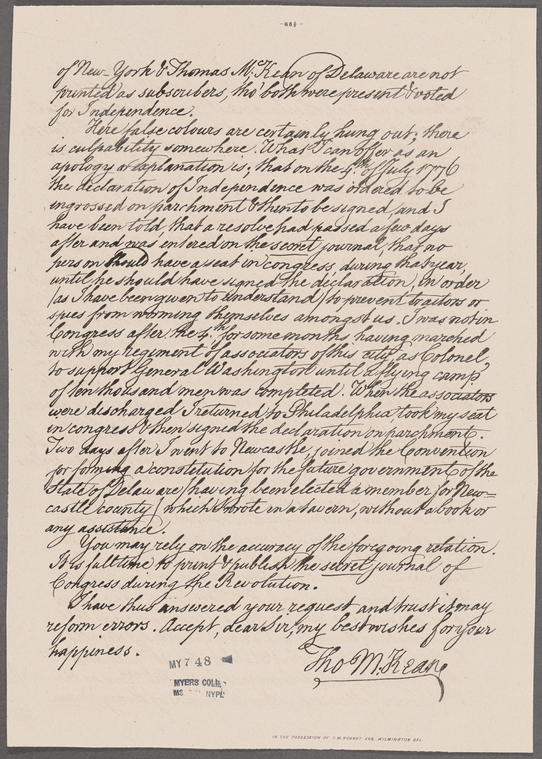 of New-York & Thomas McKean of Delaware are not
printed as subscribers, tho' both were present & voted
for Independence.
Here false colours are certainly hung out; there
is culpability somewhere. What I can offer as an
apology or explanation is; that on the 4th of July 1776
the declaration of Independence was ordered to be
ingrossed on parchment & then to be signed, and I
have been told that a resolve had passed a few days
after and was entered on the secret journal, that no
person should have a seat in congress, during that year,
until he should have signed the declaration, in order
(as I have been given to understand) to prevent traitors or
spies from worming themselves amongst us. I was not in
Congress after the 4th for some months, having marched
with my regiment of associators of this city, as Colonel,
to support General Washington until a flying camp
of ten thousand men was completed. When the associators
were discharged, I returned to Philadelphia, took my seat
in congress & then signed the declaration on parchment.
Two days after I went to Newcastle, joined the Convention
for forming a constitution for the future government of the
State of Delaware (having been elected a member for New-
castle county) which I wrote in a tavern, without a book or
any assistance.
You may rely on the accuracy of the foregoing relation.
It is full time to print & publish the secret journal of
Congress during the Revolution.
I have thus answered your request and trust it may
reform errors. Accept, dear Sir, my best wishes for your
happiness.
Tho M:Kean
MY 7 48
MYERS COLL.
MS NYPL
IN THE POSSESSION OF ESQ. WILMINGTON DEL.